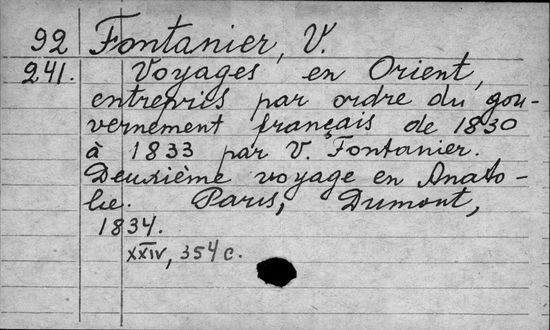 92 Fontanier, V.
241. Voyages en Orient,
entrepris par ordre du gou-
vernement français de 1830
à 1833 par V. Fontanier.
Deuxième voyage en Anato-
lie. Paris, Dumont,
1834.
XXIV, 354 c.